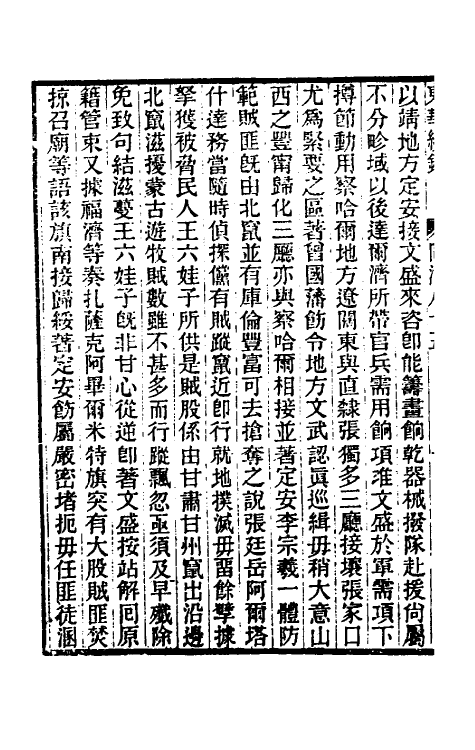 以靖地方定安接文盛來咨卽能籌畫餉乾器械撥隊赴援尙屬
不分畛域以後達爾濟所帶官兵需用餉項准文盛於軍需項下
撙節動用察哈爾地方遼闊東與直隸張獨多三廳接壤張家口
尤爲緊要之區著曾國藩飭令地方文武認眞巡緝毋稍大意山
西之豐甯歸化三廳亦與察哈爾相接並著定安李宗羲一體防
範賊匪旣由北竄並有庫倫豐富可去搶奪之說張廷岳阿爾塔
什達務當隨時偵探儻有賊蹤竄近卽行就地撲滅毋畱餘孽據
拏獲被脅民人王六娃子所供是賊股係由甘肅甘州竄出沿邊
北竄滋擾蒙古遊牧賊數雖不甚多而行蹤飄忽亟須及早殲除
免致勾結滋蔓王六娃子旣非甘心從逆卽著文盛按站解回原
籍管束又據福濟等奏扎薩克阿畢爾米特旗突有大股賊匪焚
掠召廟等語該旗南接歸綏著定安飭屬嚴密堵扼毋任匪徒溷